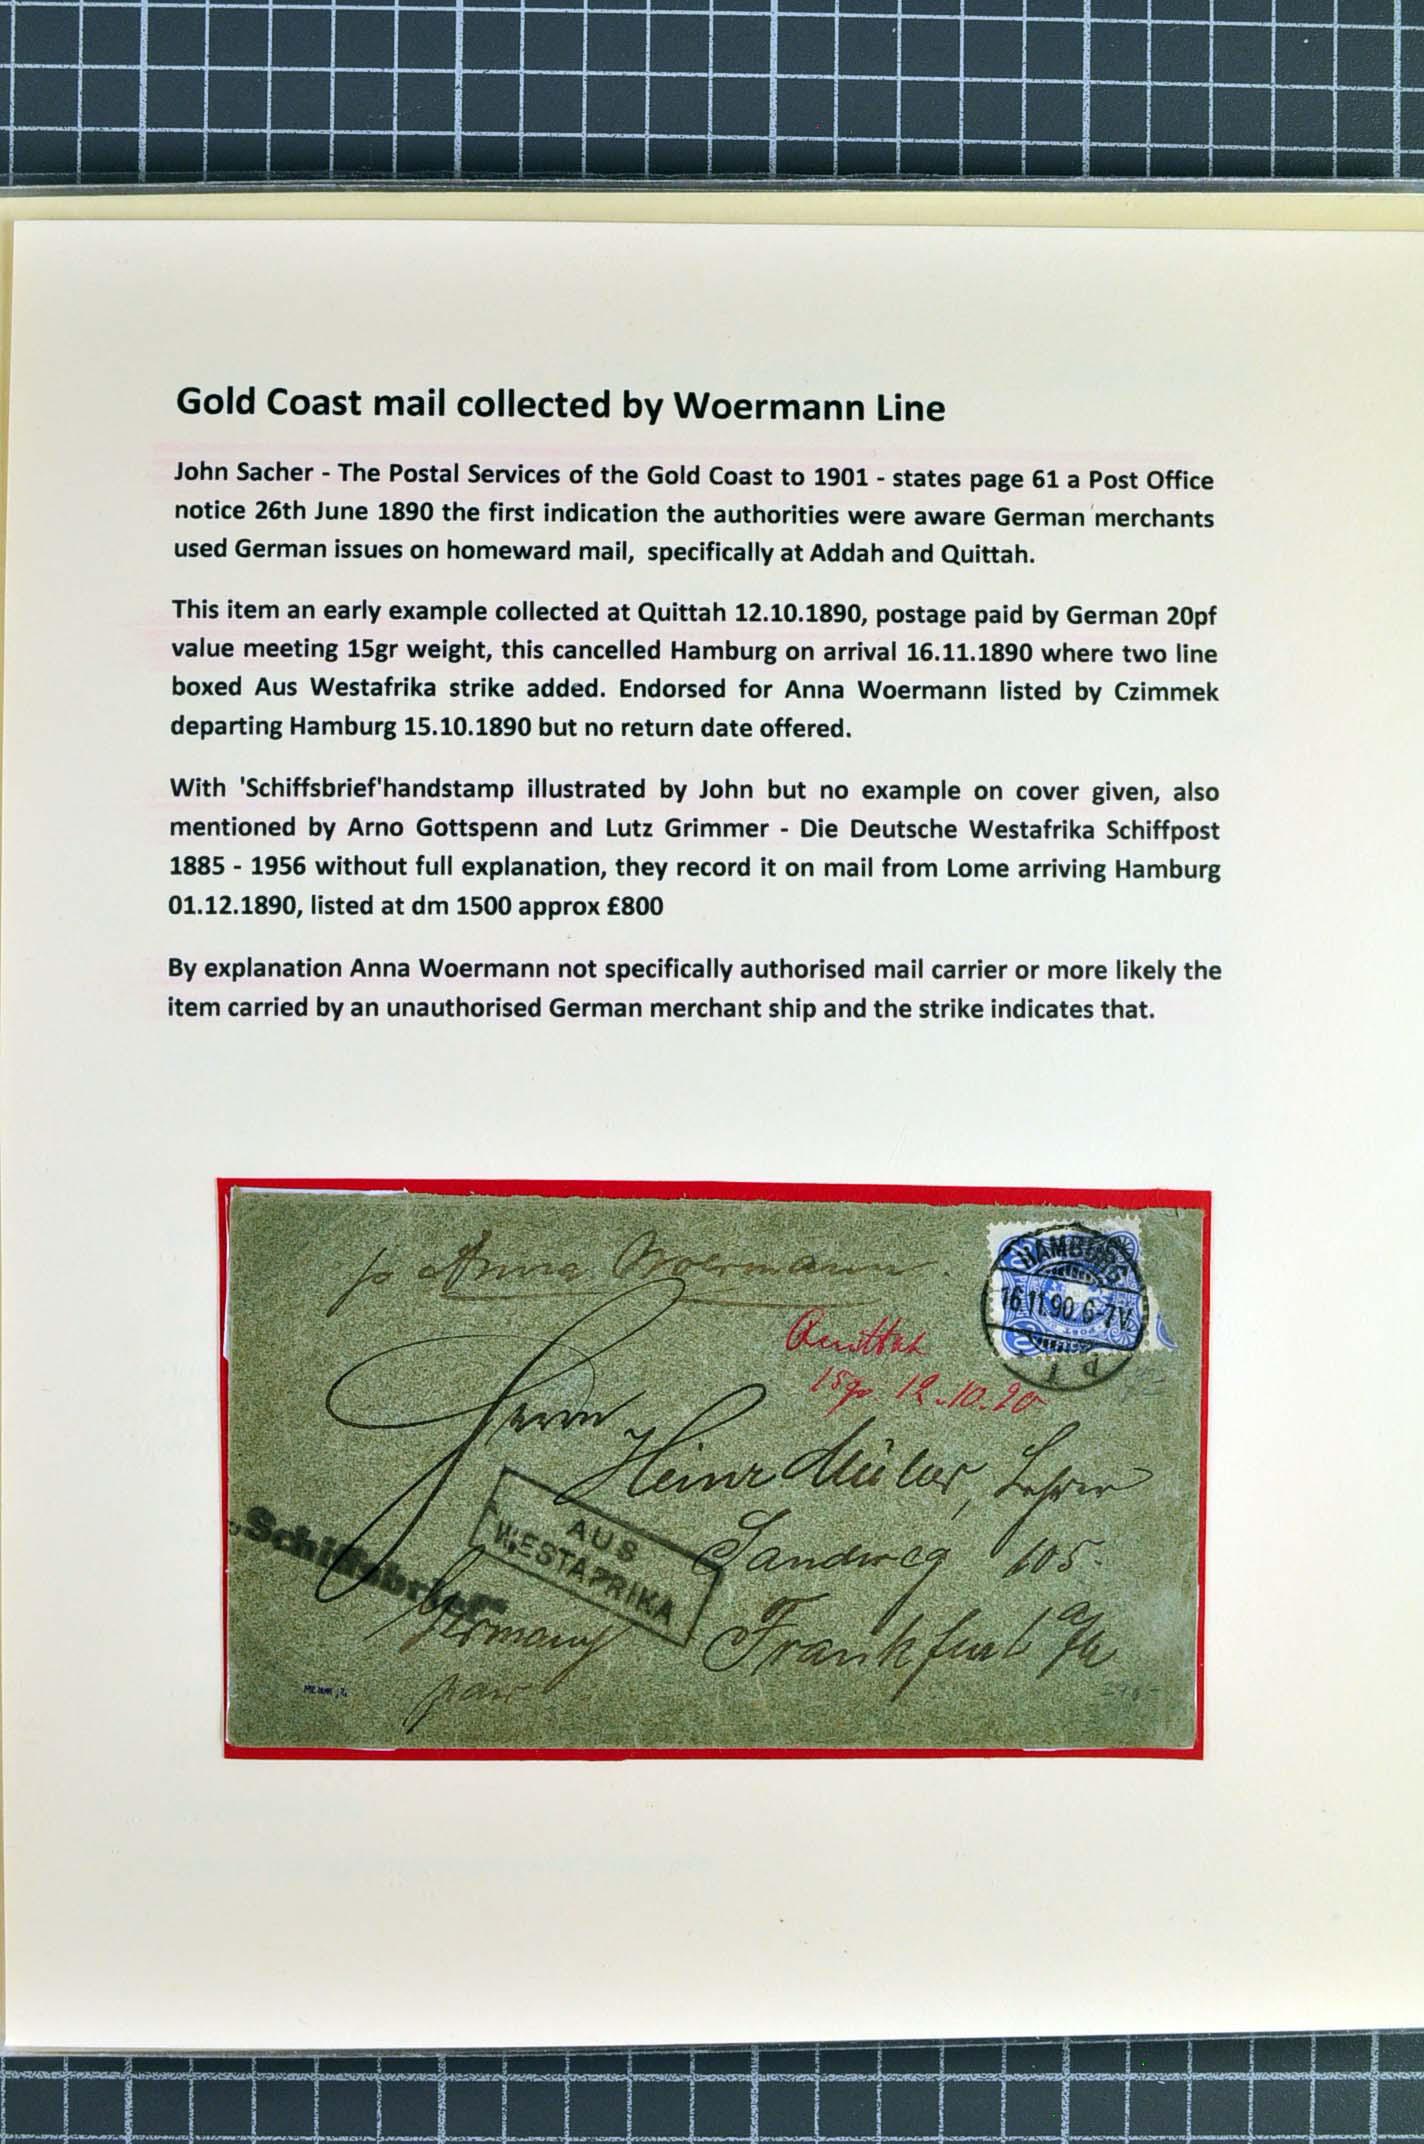 Gold Coast mail collected by Woermann Line
John Sacher - The Postal Services of the Gold Coast to 1901 - states page 61 a Post Office
notice 26th June 1890 the first indication the authorities were aware German merchants
used German issues on homeward mail, specifically at Addah and Quittah.
This item an early example collected at Quittah 12.10.1890, postage paid by German 20pf
value meeting 15gr weight, this cancelled Hamburg on arrival 16.11.1890 where two line
boxed Aus Westafrika strike added. Endorsed for Anna Woermann listed by Czimmek
departing Hamburg 15.10.1890 but no return date offered.
With 'Schiffsbrief'handstamp illustrated by John but no example on cover given, also
mentioned by Arno Gottspenn and Lutz Grimmer - Die Deutsche Westafrika Schiffpost
1885 - 1956 without full explanation, they record it on mail from Lome arriving Hamburg
01.12.1890, listed at dm 1500 approx £800
By explanation Anna Woermann not specifically authorised mail carrier or more likely the
item carried by an unauthorised German merchant ship and the strike indicates that.
p Anna Woermann.
HAMBURG
16.11.90.6-7V.
P 1
Quittah
15gr. 12.10.90
Herrn
Heinr Müller, Lehrer
Sandweg 105.
Frankfurt a/M
AUS
WESTAFRIKA
„Schiffsbrief"
Germany